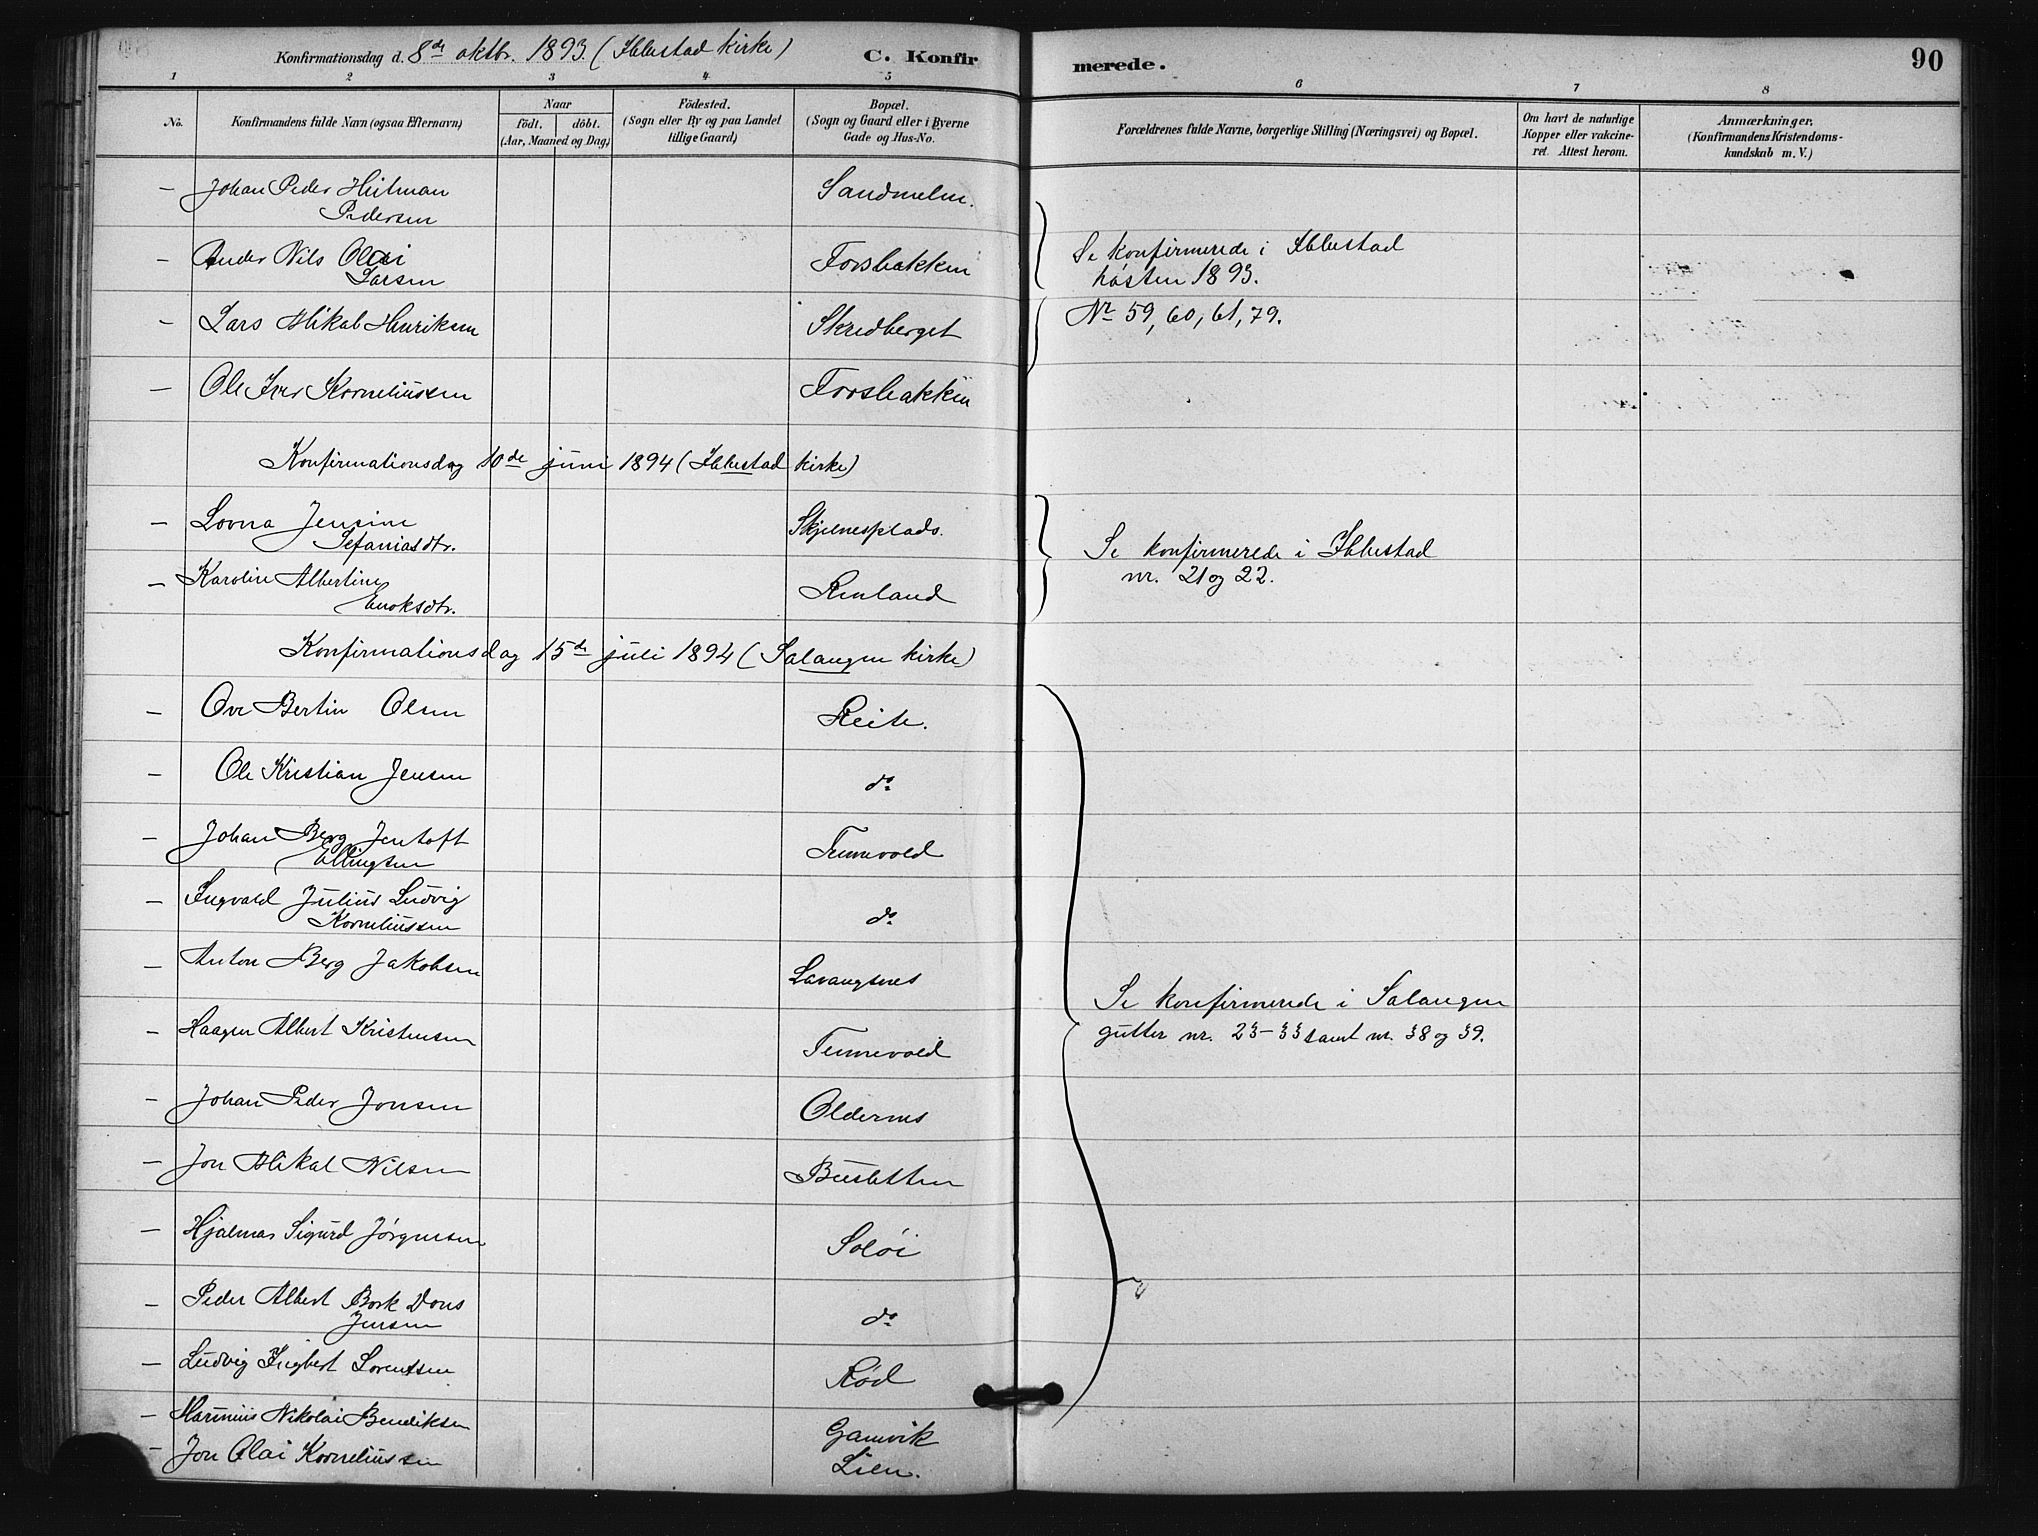 Konfirmationsdag d. 8de oktbr. 1893. (Ibbestad kirke)
C. Konfirmerede.
90
1 2 3 4 5 6 7 8
No.
Konfirmandens fulde Navn (ogsaa Efternavn)
Naar
födt. döbt.
(Aar, Maaned og Dag)
Födested.
(Sogn eller By og paa Landet
tillige Gaard)
Bopæl.
(Sogn og Gaard eller i Byerne
Gade og Hus-No.
Forældrenes fulde Navne, borgerlige Stilling (Næringsvei) og Bopæl.
Om havt de naturlige
Kopper eller vakcine-
ret. Attest herom.
Anmærkninger.
(Konfirmandens Kristendoms-
kundskab m. V.)
— Johan Peder Hilman
Pedersen
Sandmelen.
— Peder Nils Olai
Larsen
Forsbakken
Se konfirmerede i Ibbestad
høsten 1893.
— Lars Mikal Henriksen Skredberget
Nr. 59, 60, 61, 79.
— Ole Iver Korneliussen Forsbakken
Konfirmationsdag 10de juni 1894 (Ibbestad kirke)
— Lovna Jensine
Sefaniasdtr.
Skjelnesplads.
Se konfirmerede i Ibbestad
nr. 21 og 22.
— Karolin Albertine
Enoksdtr.
Renland
Konfirmationsdag 15de juli 1894 (Salangen kirke)
— Ove Bertin Olsen Reite.
— Ole Kristian Jensen do
— Johan Berg Jentoft
Ellingsen
Tennevold
— Ingvald Julius Ludvig
Korneliussen
do
— Anton Berg Jakobsen Lavangsnes
Se konfirmerede i Salangen
gutter nr. 23–33 samt nr. 38 og 39.
— Haagen Albert Kristensen Tennevold
— Johan Peder Jonsen Oldernes
— Jon Mikal Nilsen Busletten
— Hjalmar Sigurd Jørgensen Soløi
— Peder Albert Bork Dons
Jensen
do
— Ludvig Ingbert Lorentsen Rød
— Marinius Nikolai Bendiksen Gamvik
— Jon Olai Korneliussen Lien.